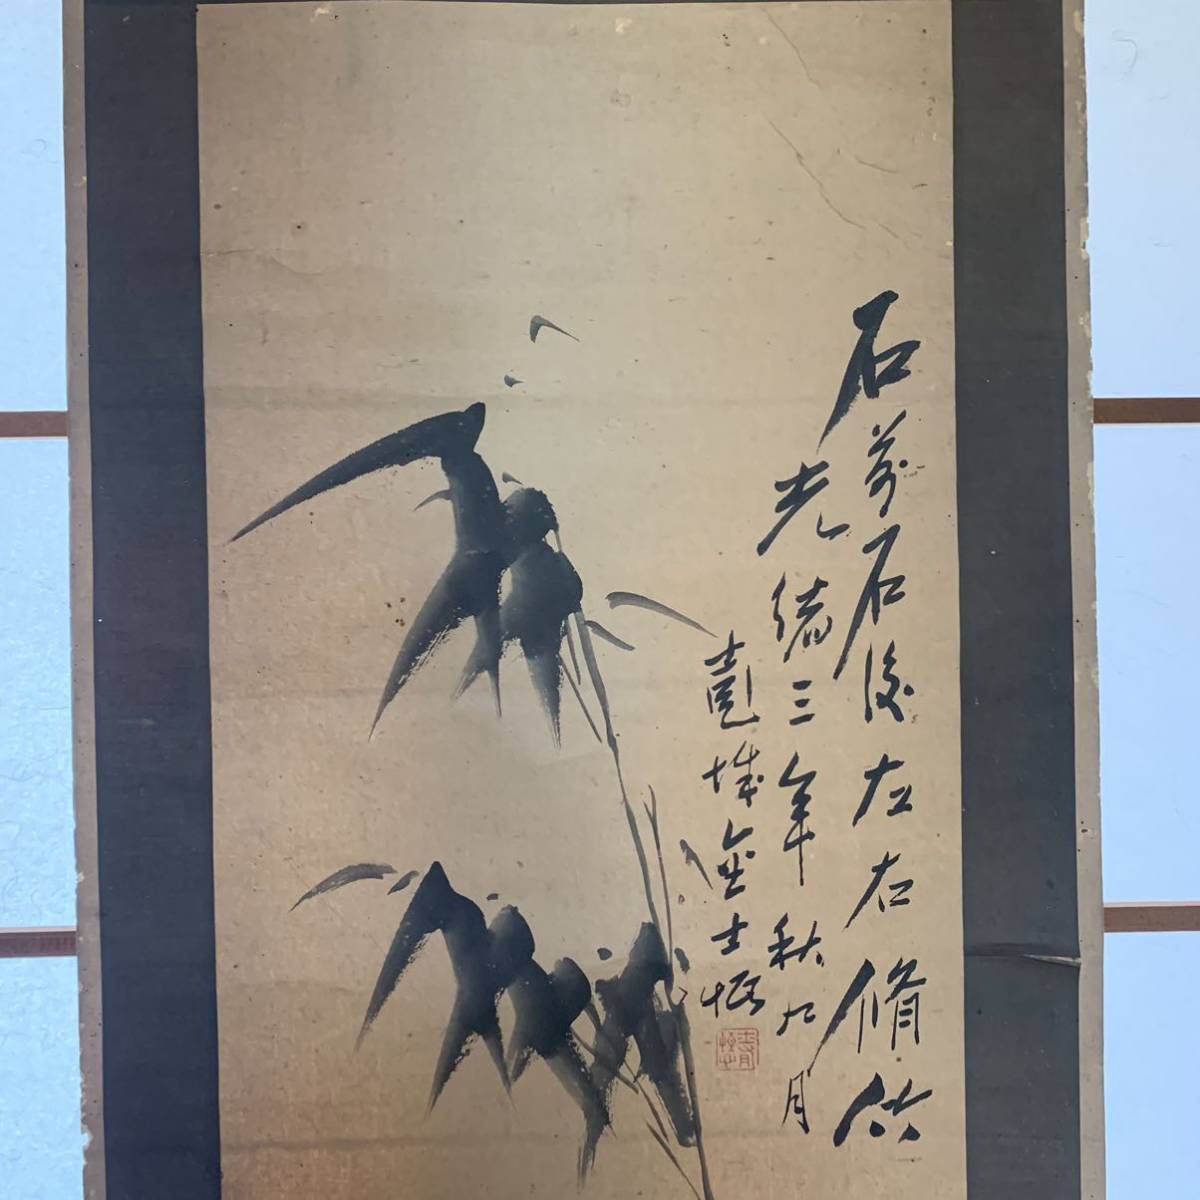 石前石後左右脩竹
光緒三年秋九月
壺城金士恒